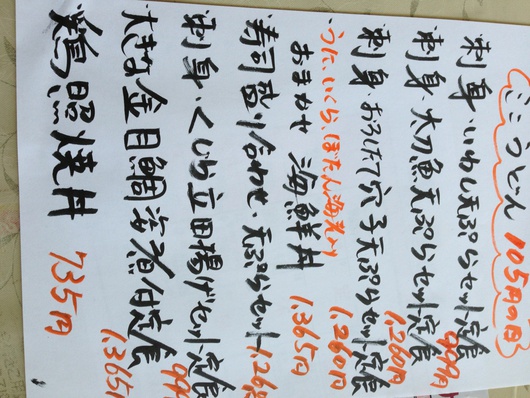 ごこうどーん 105円の日
刺身・いわし天ぷらセット定食
刺身・太刀魚天ぷらセット定食 1,260円
刺身・おろしたて穴子天ぷらセット定食 1,260円
うに、いくら、ぼたん海老入り
おまかせ 海鮮丼 1,365円
寿司盛り合わせ・天ぷらセット 1,26
刺身・くじら立田揚げセット定食 99
大きな金目鯛 煮付定食 1,365
鶏照焼丼 735円